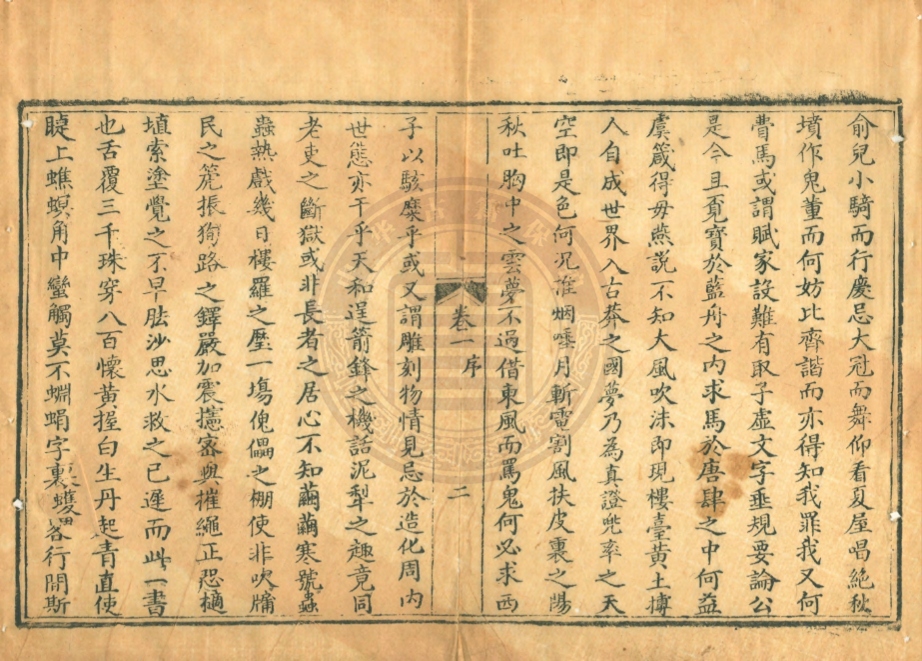 俞兒小騎而行慶忌大冠而舞仰看夏屋唱絶秋
墳作鬼董而何妨比齊諧而亦得知我罪我又何
費焉或謂賦家設難有取子虛文字垂規要論公
是今且覓寶於藍舟之内求馬於唐肆之中何益
虞箴得毋燕說不知大風吹沫即現樓臺黄土摶
人自成世界入古莽之國夢乃為真證兜率之天
空即是色何况誰烟唾月斬電割風扶皮裏之陽
秋吐胸中之雲夢不過借東風而罵鬼何必求西
卷一 序 二
子以駭麋乎或又謂雕刻物情見忌於造化周内
世態亦干乎天和逞箭鋒之機話泥犁之趣竟同
老吏之斷獄或非長者之居心不知繭繭寒號蟲
蟲熱戲幾日樓羅之歷一塲傀儡之棚使非吹牖
民之箎振狥路之鐸嚴加震攇密與摧繩正恐擿
埴索塗覺之不早肱沙思水救之已遲而此一書
也舌覆三千珠穿八百懷黄握白生丹起青直使
睫上蟭螟角中蠻觸莫不蜵蜎字裏蠼畧行閒斯